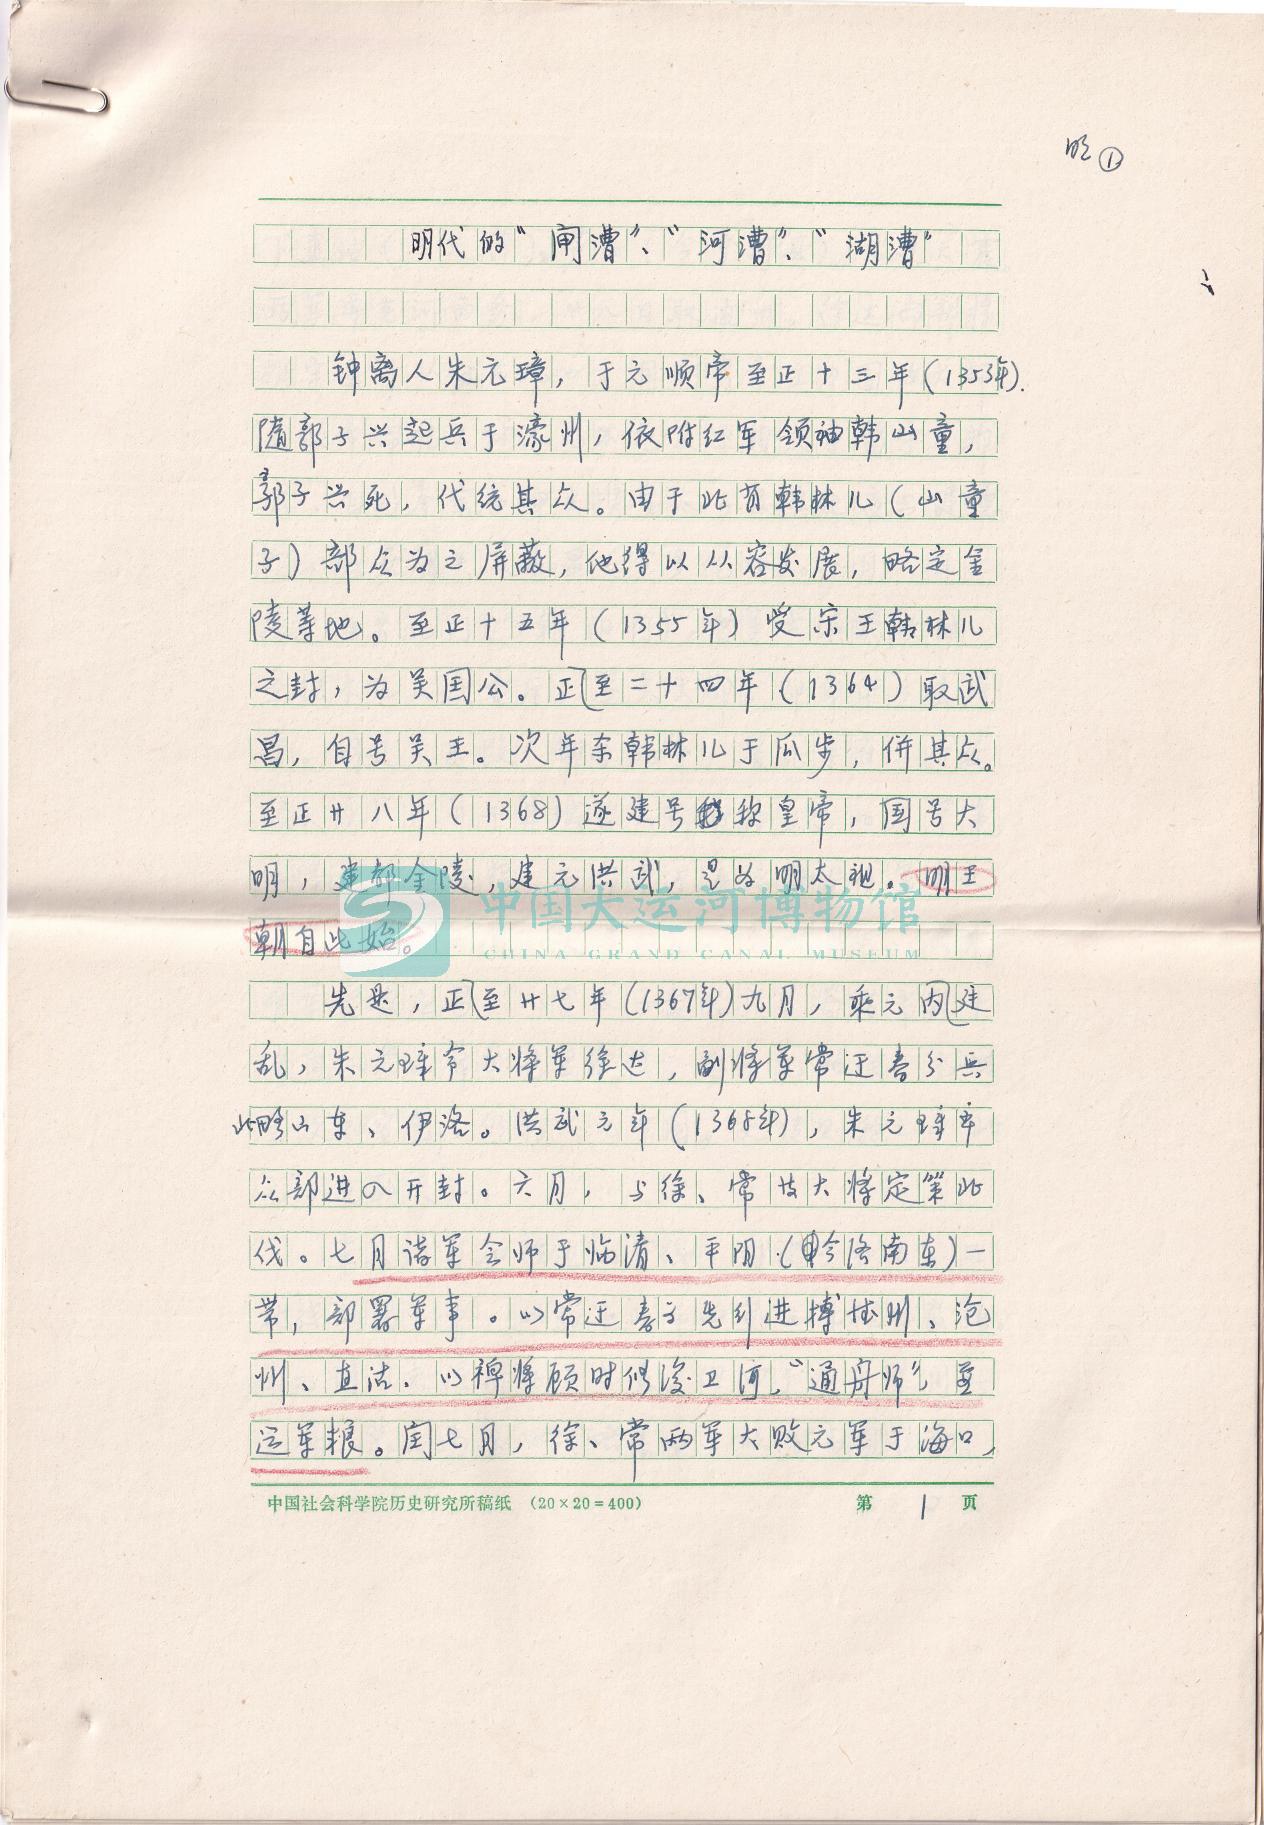 明①
明代的“闸漕”、“河漕”、“湖漕”
钟离人朱元璋，于元顺帝至正十三年(1353年).
随郭子兴起兵于濠州，依附红军领袖韩山童，
郭子兴死，代统其众。由于北有韩林儿(山童
子)部众为之屏蔽，他得以从容发展，略定金
陵等地。至正十五年(1355年)受宋王韩林儿
之封，为吴国公。正至二十四年(1364)取武
昌，自号吴王。次年杀韩林儿于瓜步，併其众。
至正廿八年(1368)遂建号称皇帝，国号大
明，建都金陵，建元洪武，是为明太祖。明王
朝自此始。
中国大运河博物馆
CHINA GRAND CANAL MUSEUM
先是，正至廿七年(1367年)九月，乘元内
乱，朱元璋令大将军徐达，副将军常迂春分兵
北略山东、伊洛。洪武元年(1368年)，朱元璋率
众部进入开封。六月，与徐、常大将定策北
伐。七月诸军会师于临清、平阴(今洛南东)一
带，部署军事。以常迂春为先引进搏州、沧
州、直沽、以裨将顾时修浚卫河，“通舟师”至
运军粮。闰七月，徐、常两军大败元军于海口，
中国社会科学院历史研究所稿纸 (20×20=400) 第 1 页